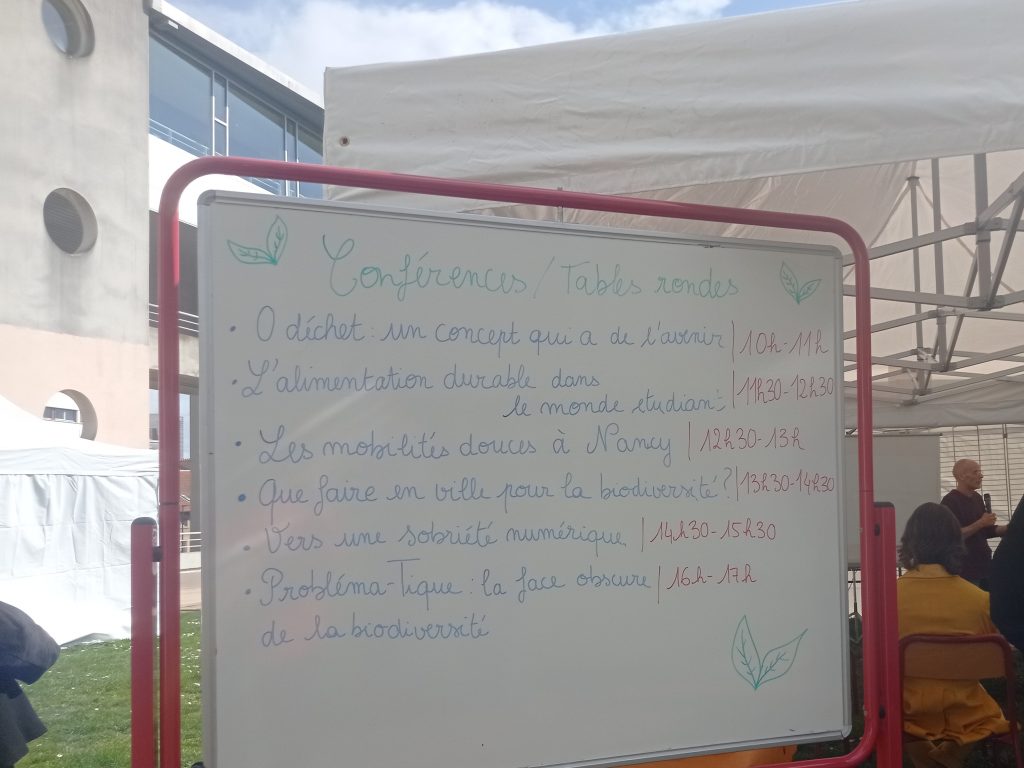 Conférences / Tables rondes
• 0 déchet : un concept qui a de l'avenir | 10h-11h
• L'alimentation durable dans
le monde etudiant | 11h30-12h30
• Les mobilités douces à Nancy | 12h30-13h
• Que faire en ville pour la biodiversité ? | 13h30-14h30
• Vers une sobriété numérique | 14h30-15h30
• Probléma-Tique : la face obscure | 16h-17h
de la biodiversité